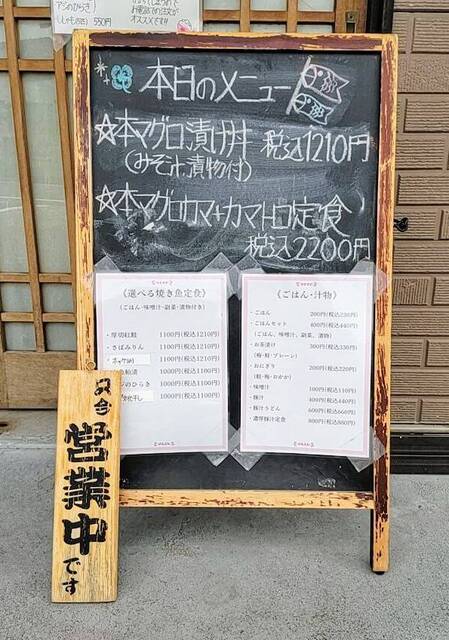 アジのひらき
(ししゃも5ヶ) 550円
お電話でのご注文が
オススメです!!
本日のメニュー
☆本マグロ漬け丼 税込1210円
(みそ汁、漬物付)
☆本マグロカマ+カマトロ定食
税込2200円
《選べる焼き魚定食》
(ごはん・味噌汁・副菜・漬物付き)
・厚切紅鮭 1100円(税込1210円)
・さばみりん 1100円(税込1210円)
・ホッケ 1100円(税込1210円)
粕漬 1000円(税込1100円)
のひらき 1000円(税込1100円)
干し 1000円(税込1100円)
《ごはん・汁物》
・ごはん 200円(税込220円)
・ごはんセット 400円(税込440円)
(ごはん、味噌汁、副菜、漬物)
・お茶漬け 300円(税込330円)
(梅・鮭・プレーン)
・おにぎり 200円(税込220円)
(鮭・梅・おかか)
・味噌汁 100円(税込110円)
・豚汁 400円(税込440円)
・豚汁うどん 600円(税込660円)
・濃厚豚汁定食 800円(税込880円)
只今
営業中
です